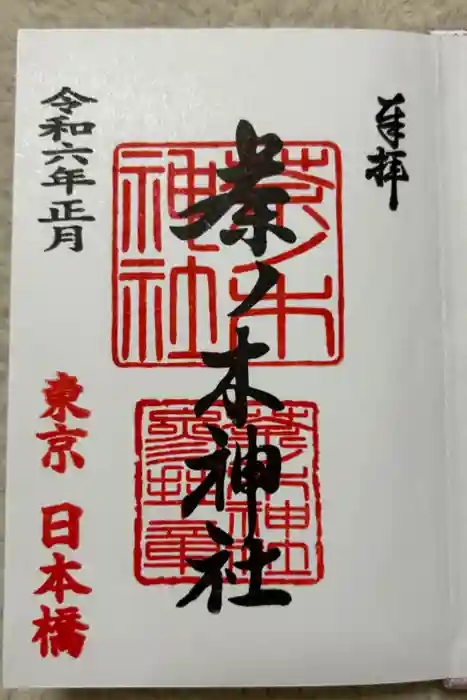 奉拝
茶ノ木神社
茶ノ木
神社
茶ノ木神社
令和六年正月
東京 日本橋